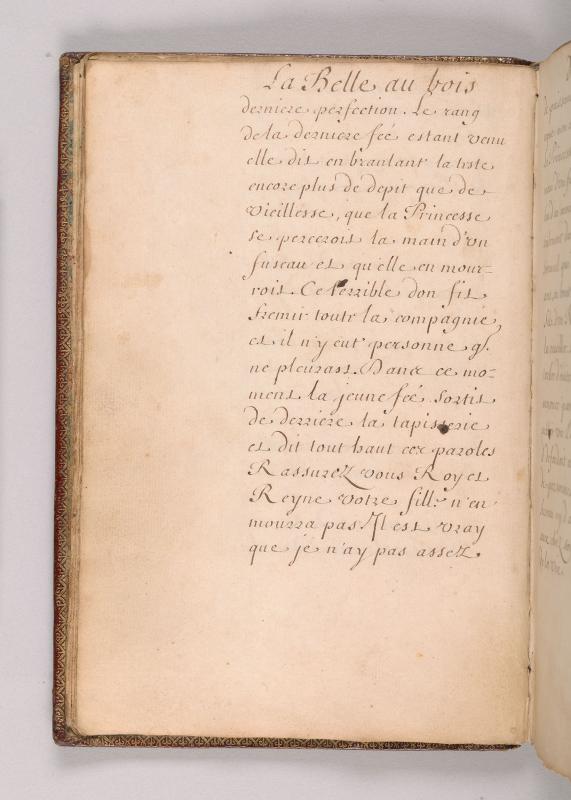 La Belle au bois
derniere perfection. Le rang
de la derniere feé estant venu
elle dit en branlant la teste
encore plus de depit que de
vieillesse, que la Princesse
se perceroit la main d'un
fuseau et qu'elle en mour-
roit. Ce terrible don fit
fremir toute la compagnie,
et il n'y eut personne q.
ne pleurast. Dans ce mo-
ment la jeune feé sortit
de derriere la tapisserie
et dit tout haut ces paroles
Rassurez vous Roy et
Reyne votre fille n'en
mourra pas. Il est vray
que je n'ay pas assez.